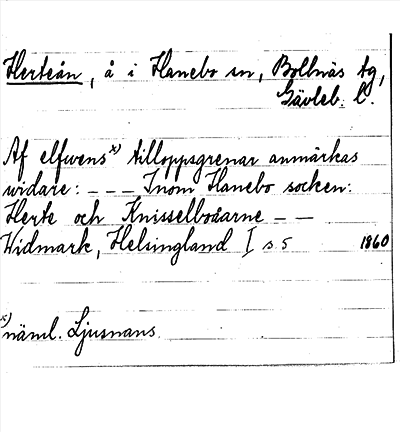 Herteån, å i Hanebo sn, Bollnäs tg,
Gävleb. l.
Af elfwens x) tilloppsgrenar anmärkas
widare: - - - Inom Hanebo socken:
Herte och Knisselboåarne - -
Widmark, Helsingland I s. 5 1860
x) näml. Ljusnans